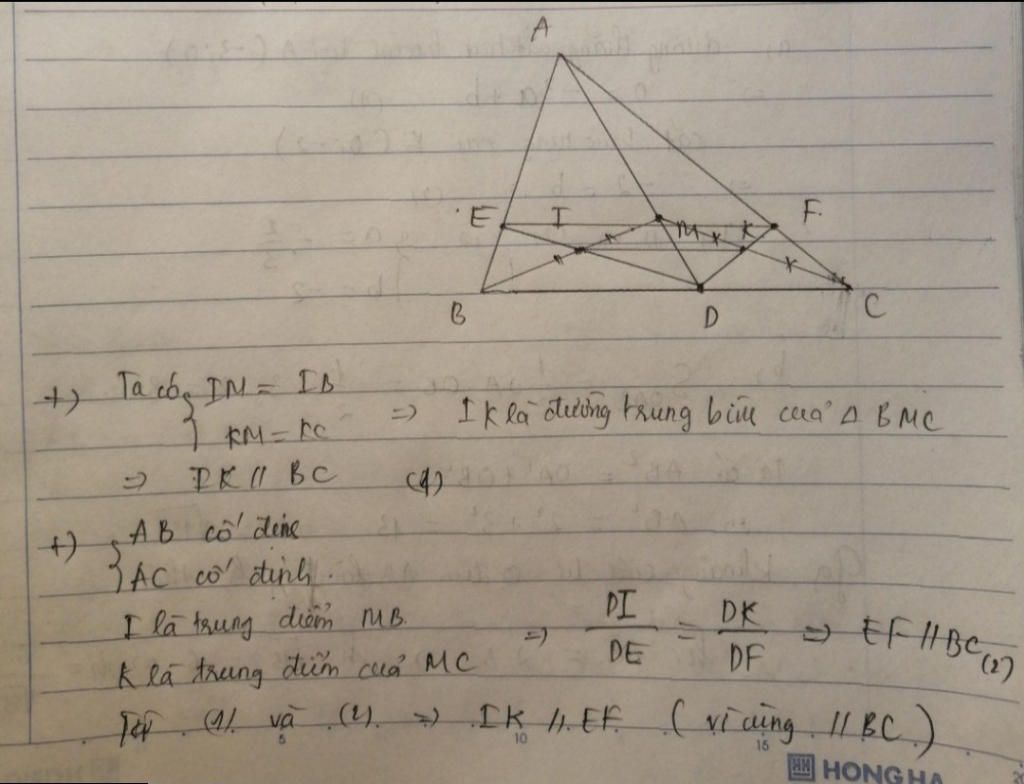 A
E I M K F.
B D C
+) Ta có { IM = IB
KM = KC => IK là đường trung bìn cuả △ BMC
=> IK // BC (1)
+) { AB cố địn
AC cố định.
I là trung điểm MB.
K là trung điểm cuả MC => DI/DE = DK/DF => EF // BC (2)
Từ (1) và (2) => IK // EF ( vì cùng // BC )
5 10 15
HONG HA